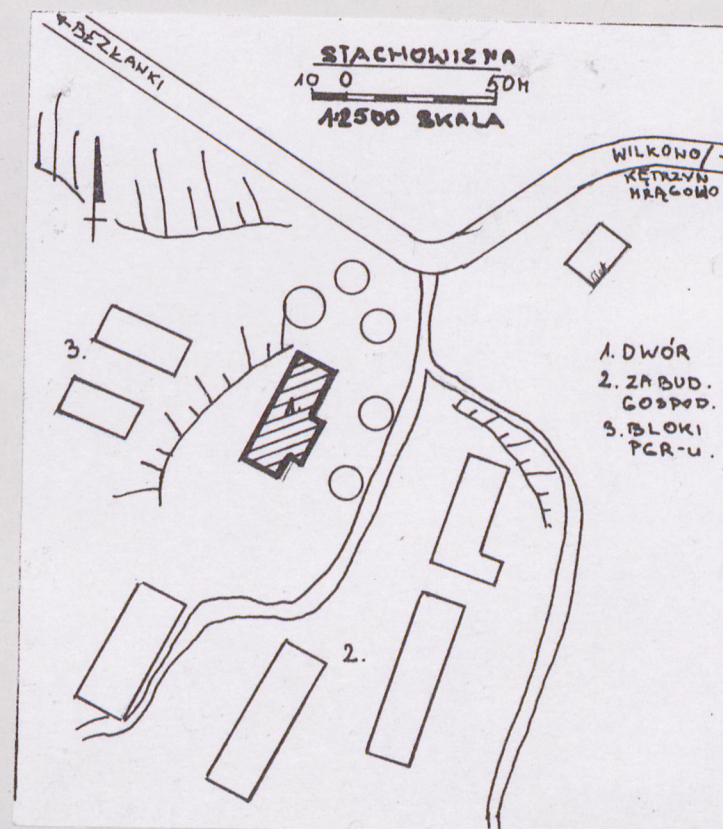 BEZŁANKI
STACHOWIZNA
10 0 50M
1:2500 SKALA
WILKOWO/
KĘTRZYN
MRĄGOWO
3.
1.
1. DWÓR
2. ZABUD.
GOSPOD.
3. BLOKI
PGR-U.
2.